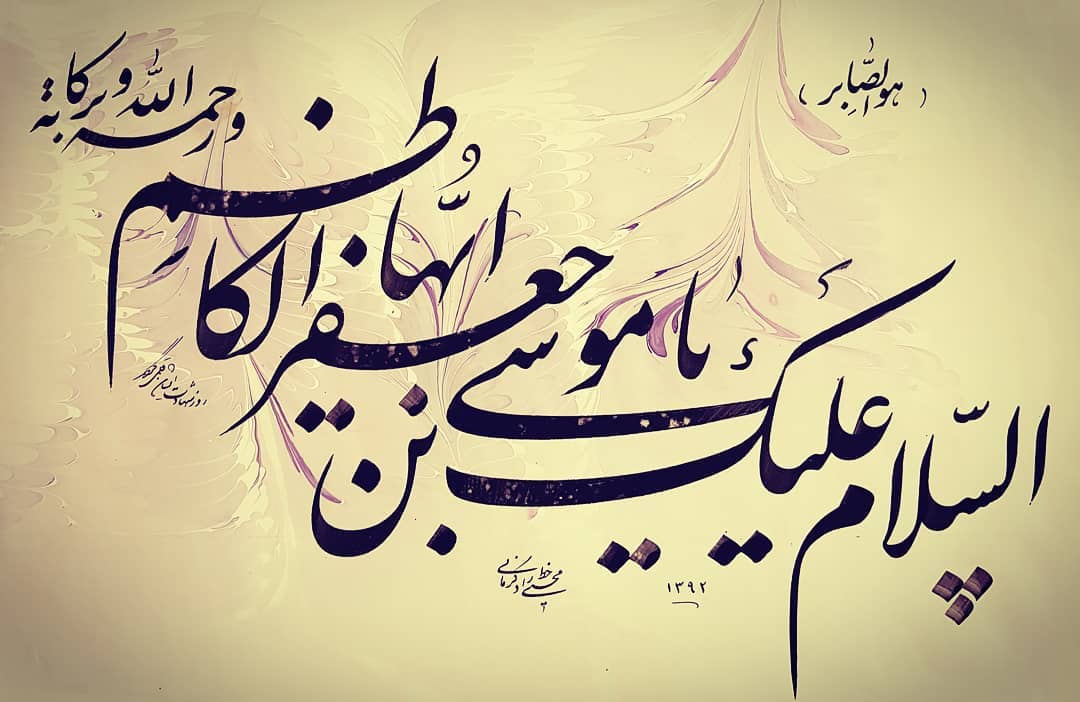 ( هوالصّابر )
السّلام علیک یا موسی بن جعفر ایّها الکاظم
ورحمه اللّٰه وبرکاته
روز شهادت
خط
۱۳۹۲